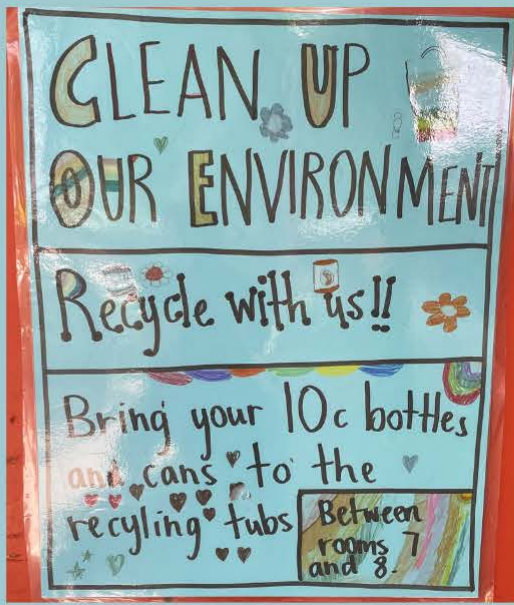 CLEAN UP
OUR ENVIRONMENT
Recycle with us!!
Bring your 10c bottles
and cans to the
recyling tubs
Between
rooms 7
and 8.